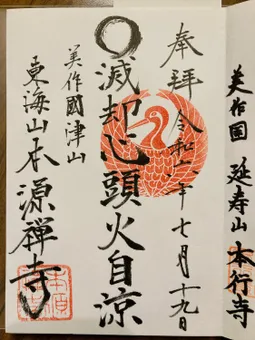 奉拝
令和六年七月十九日
滅却心頭火自涼
美作國津山
東海山本源禅寺
美作国 延寿山 本行寺